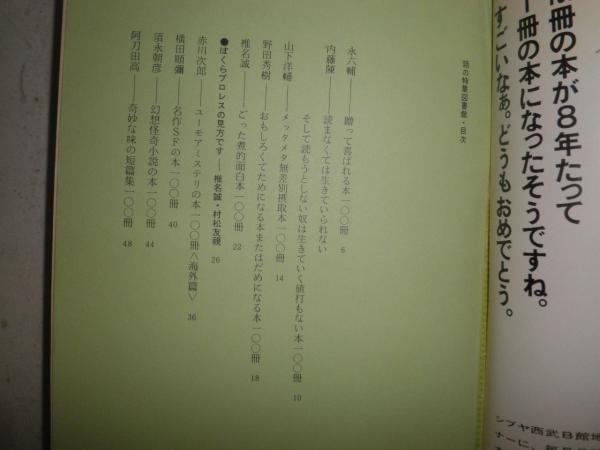 冊の本が8年たって
一冊の本になったそうですね。
すごいなぁ。どうもおめでとう。
シブヤ西武B館地
ナーに、毎月
話の特集図書館・目次
永六輔――贈って喜ばれる本一〇〇冊 6
内藤陳――読まなくては生きていられない
そして読もうとしない奴は生きていく値打もない本一〇〇冊 10
山下洋輔――メッタメタ無差別摂取本一〇〇冊 14
野田秀樹――おもしろくてためになる本またはだめになる本一〇〇冊 18
椎名誠――ごった煮的面白本一〇〇冊 22
●ぼくらプロレスの見方です――椎名誠・村松友視 26
赤川次郎――ユーモアミステリの本一〇〇冊〈海外篇〉 36
横田順彌――名作SFの本一〇〇冊 40
須永朝彦――幻想怪奇小説の本一〇〇冊 44
阿刀田高――奇妙な味の短篇集一〇〇冊 48